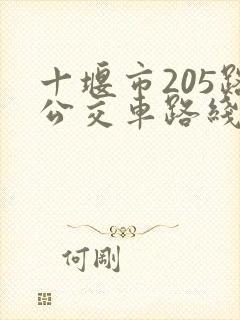 十堰市205路
公交车路线
何剛